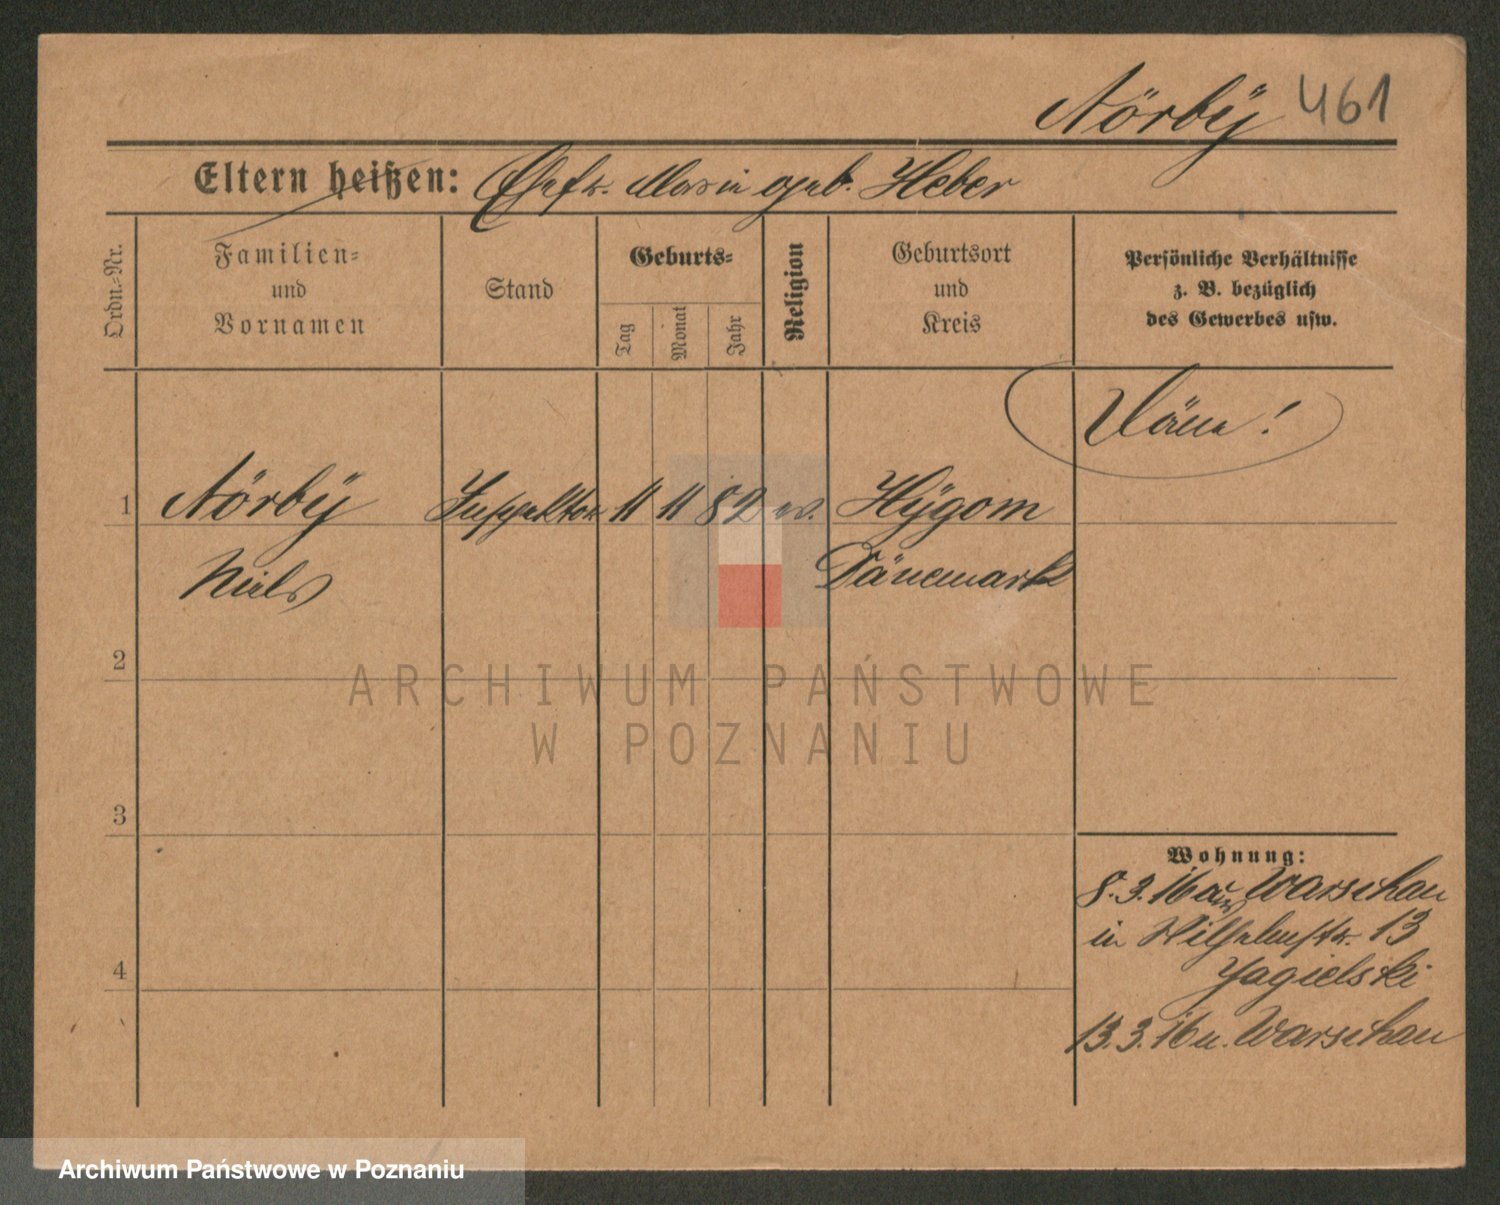 Nörbÿ 461
Eltern heißen: Ehefr. Marie geb. Heber
Ordn.-Nr.
Familien-
und
Vornamen
Stand
Geburts-
Tag
Monat
Jahr
Religion
Geburtsort
und
Kreis
Persönliche Verhältnisse
z. B. bezüglich
des Gewerbes usw.
Däne!
1 Nörbÿ Inspektor 11 11 82 ev. Hÿgom
Niels Dänemark
2
3
4
Wohnung:
8.3.16 aus Warschau
in Wilhelmstr. 13
Jagielski
13.3.16 n. Warschau
ARCHIWUM PAŃSTWOWE
W POZNANIU
Archiwum Państwowe w Poznaniu